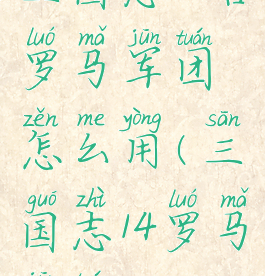 luó mǎ jūn tuán
罗马军团
zěn me yòng sān
怎么用(三
guó zhì luó mǎ
国志14罗马